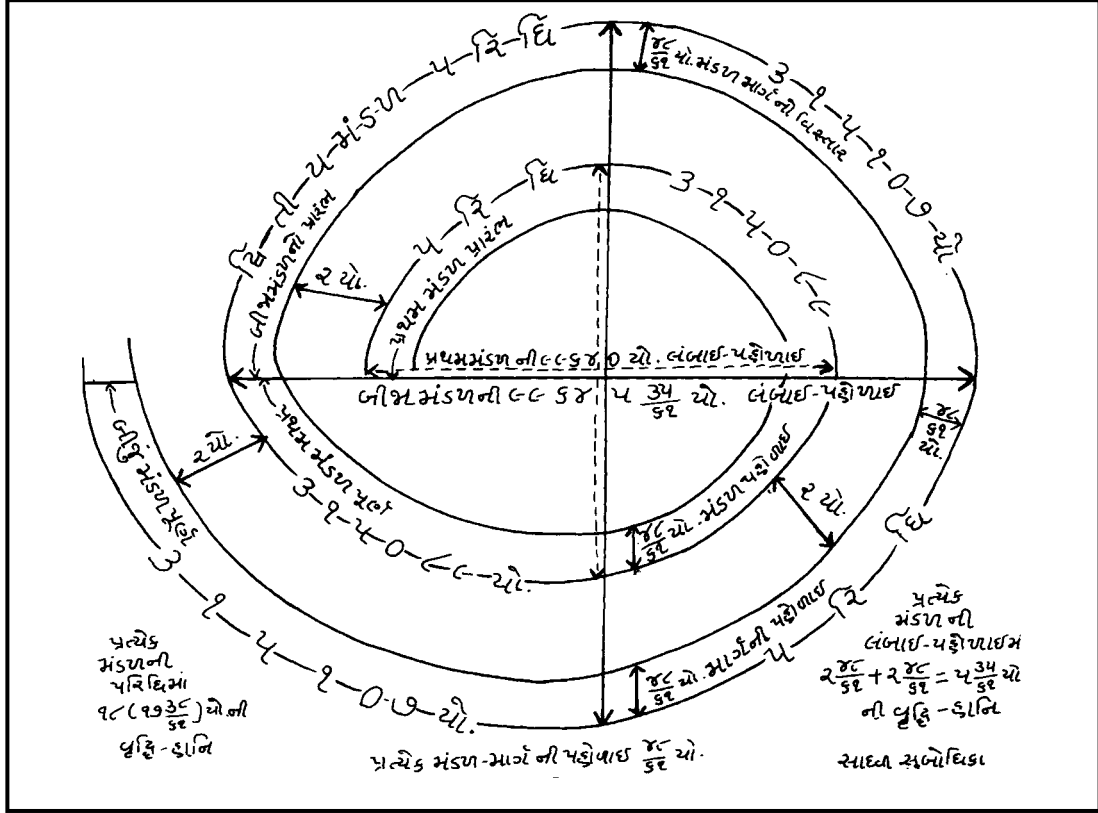 દ્વિ-તી-ય-મં-ડ-ળ-પ-રિ-ધિ
૩-૧-૫-૧-૦-૭-યો.
૪૮/૬૧ યો. મંડળ માર્ગનો વિસ્તાર
બીજામંડળનો પ્રારંભ
પ-રિ-ધિ
૩-૧-૫-૦-૮-૯
પ્રથમ મંડળ પ્રારંભ
૨ યો.
પ્રથમમંડળની ૯૯૬૪૦ યો. લંબાઈ-પહોળાઈ
બીજામંડળની ૯૯૬૪૫ ૩૫/૬૧ યો. લંબાઈ-પહોળાઈ
૪૮/૬૧ યો.
બીજું મંડળ પૂર્ણ
૨ યો.
પ્રથમ મંડળ પૂર્ણ
૩-૧-૫-૦-૮-૯-યો.
૪૮/૬૧ યો. મંડળ પહોળાઈ
૨ યો.
૩-૧-૫-૧-૦-૭-યો.
૪૮/૬૧ યો. માર્ગની પહોળાઈ
પ-રિ-ધિ
પ્રત્યેક
મંડળની
પરિધિમાં
૧૮(૧૭ ૩૮/૬૧) યો.ની
વૃદ્ધિ-હાનિ
પ્રત્યેક
મંડળની
લંબાઈ-પહોળાઈમાં
૨ ૪૮/૬૧ + ૨ ૪૮/૬૧ = ૫ ૩૫/૬૧ યો
ની વૃદ્ધિ-હાનિ
પ્રત્યેક મંડળ-માર્ગની પહોળાઈ ૪૮/૬૧ યો.
સાદ્યા સુબોધિકા